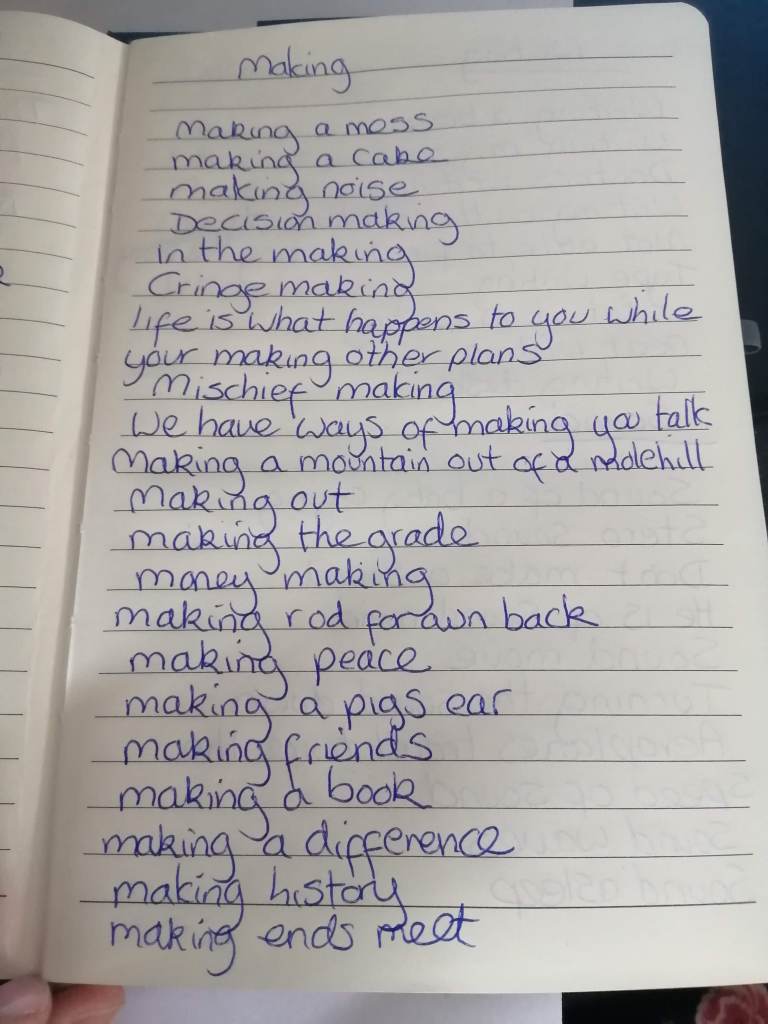 Making
Making a mess
making a cake
making noise
Decision making
in the making
Cringe making
life is what happens to you while
your making other plans
Mischief making
We have ways of making you talk
Making a mountain out of a molehill
Making out
making the grade
money making
making rod for own back
making peace
making a pigs ear
making friends
making a book
making a difference
making history
making ends meet